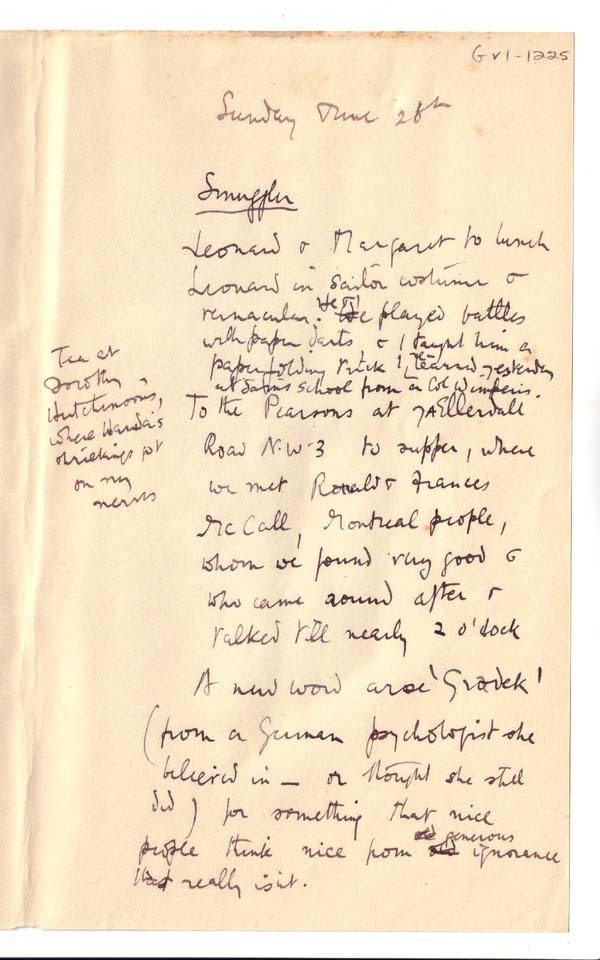 GV1-1225
Sunday June 28th
Smuggler
Leonard & Margaret to lunch
Leonard in sailor costume &
vernacular. He & I played battles
with paper darts & I taught him a
paper folding trick I learned yesterday
at school from a Col Wimperis.
Tea at
Dorothy
Hutchinsons,
where Wanda's
shriekings got
on my
nerves
To the Pearsons at 7A Ellerdale
Road N.W.3 to supper, where
we met Ronald & Frances
McCall, Montreal people,
whom we found very good &
who came round after &
talked till nearly 2 o'clock
A new word arose 'Grodek'
(from a German psychologist she
believed in — or thought she still
did) for something that nice
people think nice from generous ignorance
really isnt.